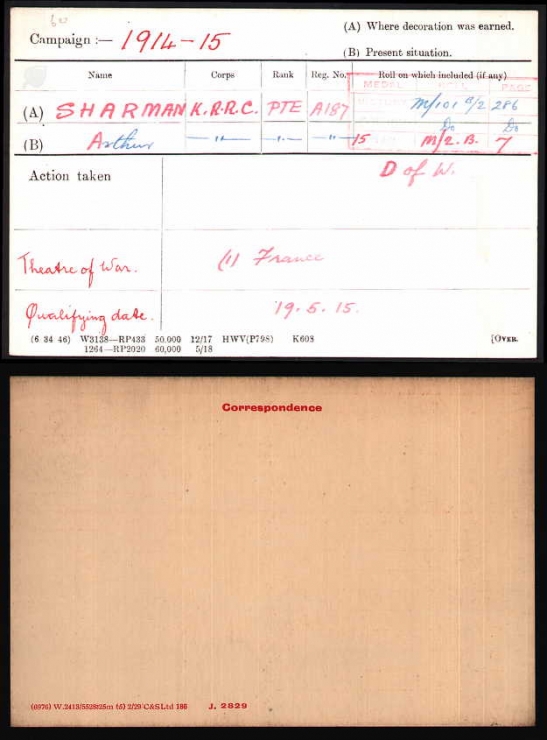 (A) Where decoration was earned.
Campaign :— 1914-15
(B) Present situation.
Name Corps Rank Reg. No. Roll on which included (if any)
MEDAL ROLL PAGE
(A) SHARMAN K.R.R.C. PTE A187 VICTORY M/101 B/2 286
Do Do
(B) Arthur —"— —"— —"— 15 STAR M/2.B. 7
Action taken D of W.
Theatre of War. (1) France
Qualifying date. 19.5.15.
(6 34 46) W3138—RP433 50,000 12/17 HWV(P798) K608 [OVER.
1264—RP2020 60,000 5/18
Correspondence
(0376) W.2413/5528 125m (6) 2/29 C&S Ltd 166 J. 2829